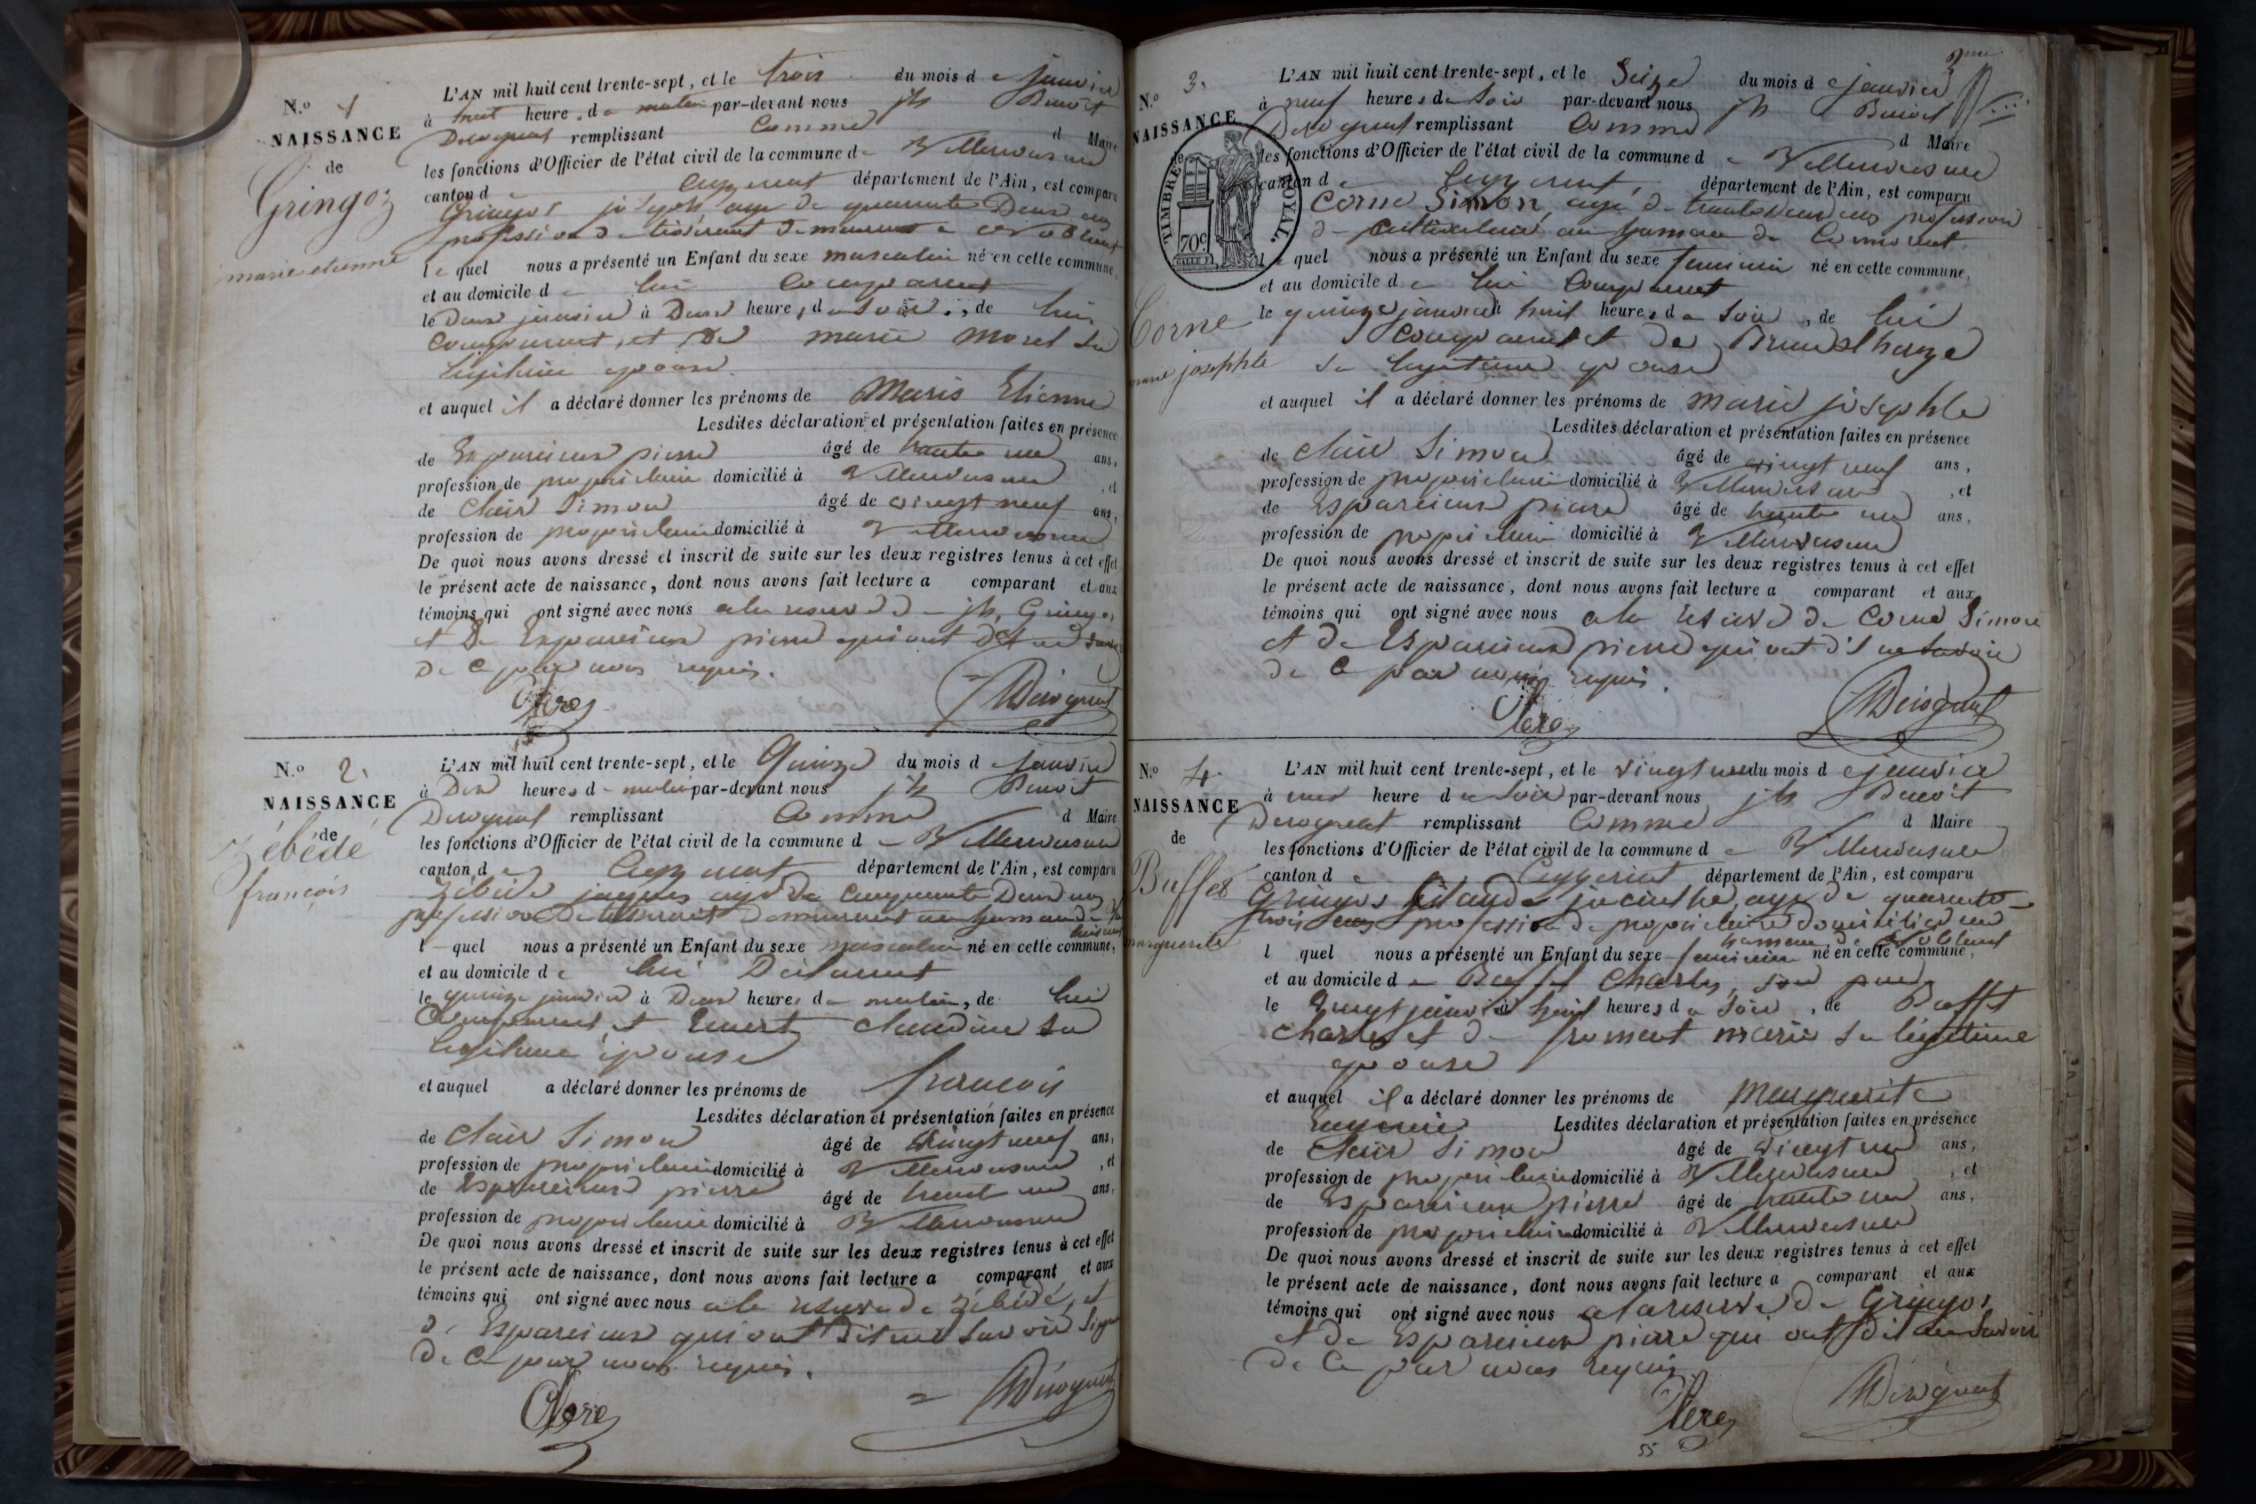 N.º 1
NAISSANCE
de
Gringoz
marie etienne
L'AN mil huit cent trente-sept, et le trois du mois de janvier
à huit heure, de matin par-devant nous jh Benoit
Derognat remplissant comme d Maire
les fonctions d'Officier de l'état civil de la commune de Villereversure
canton de Ceyzeriat département de l'Ain, est comparu
Gringoz joseph agé de quarante Deux ans
profession de tisserant demeurant a
le quel nous a présenté un Enfant du sexe masculin né en cette commune,
et au domicile de lui comparant
le Deux janvier à Deux heure, du soir, de lui
comparant, et de marie morel sa
légitime epouse
et auquel il a déclaré donner les prénoms de Marie Etienne
Lesdites déclaration et présentation faites en présence
de Esparcieux pierre âgé de trente un ans,
profession de propriétaire domicilié à Villereversure, et
de Clair Simon âgé de vingt neuf ans,
profession de propriétaire domicilié à Villereversure
De quoi nous avons dressé et inscrit de suite sur les deux registres tenus à cet effet
le présent acte de naissance, dont nous avons fait lecture a comparant et aux
témoins qui ont signé avec nous a la reserve de jh, Gringoz
et de Esparcieux pierre qui ont dit ne savoir
de ce par nous requis.
Clere
Derognat
N.º 2.
NAISSANCE
de
Zébédé
françois
L'AN mil huit cent trente-sept, et le Quinze du mois de janvier
à Dix heures de matin par-devant nous jh Benoit
Derognat remplissant comme d Maire
les fonctions d'Officier de l'état civil de la commune de Villereversure
canton de Ceyzeriat département de l'Ain, est comparu
Zébédé jaques agé de cinquante Deux ans
profession de tisserant demeurant au hameau de
l quel nous a présenté un Enfant du sexe masculin né en cette commune,
et au domicile de lui Déclarant
le quinze janvier à Deux heures de matin, de lui
Comparant et claudine sa
légitime épouse
et auquel a déclaré donner les prénoms de françois
Lesdites déclaration et présentation faites en présence
de Clair Simon âgé de vingt neuf ans,
profession de propriétaire domicilié à Villereversure, et
de Esparcieux pierre âgé de trente un ans,
profession de propriétaire domicilié à Villereversure
De quoi nous avons dressé et inscrit de suite sur les deux registres tenus à cet effet
le présent acte de naissance, dont nous avons fait lecture a comparant et aux
témoins qui ont signé avec nous a la reserve de Zébédé, et
de Esparcieux qui ont dit ne savoir signer
de ce par nous requis.
Clere
Derognat
2me
N.º 3.
NAISSANCE
de
TIMBRE ROYAL.
70c
Corne
marie josephte
L'AN mil huit cent trente-sept, et le Seize du mois de janvier
à neuf heures du soir par-devant nous jh Benoit
Derognat remplissant comme d Maire
les fonctions d'Officier de l'état civil de la commune de Villereversure
canton de Ceyzeriat, département de l'Ain, est comparu
Corne Simon, agé de trente deux ans profession
de cultivateur au hameau de
le quel nous a présenté un Enfant du sexe feminin né en cette commune,
et au domicile de lui comparant
le quinze janvier à huit heures du soir, de lui
comparant et de
sa légitime epouse
et auquel il a déclaré donner les prénoms de marie josephte
Lesdites déclaration et présentation faites en présence
de Clair Simon âgé de vingt neuf ans,
profession de propriétaire domicilié à Villereversure, et
de Esparcieux pierre âgé de trente un ans,
profession de propriétaire domicilié à Villereversure
De quoi nous avons dressé et inscrit de suite sur les deux registres tenus à cet effet
le présent acte de naissance, dont nous avons fait lecture a comparant et aux
témoins qui ont signé avec nous a la reserve de Corne Simon
et de Esparcieux pierre qui ont dit ne savoir
de ce par nous requis.
Clere
Derognat
N.º 4.
NAISSANCE
de
Buffet
marguerite
L'AN mil huit cent trente-sept, et le vingt un du mois de janvier
à une heure du soir par-devant nous jh Benoit
Derognat remplissant comme d Maire
les fonctions d'Officier de l'état civil de la commune de Villereversure
canton de Ceyzeriat département de l'Ain, est comparu
Gringoz Claude jacinthe, agé de quarante
trois ans profession de propriétaire domicilié au
hameau de
l quel nous a présenté un Enfant du sexe feminin né en cette commune,
et au domicile de Buffet Charles, son pere
le vingt janvier à huit heures du soir, de Buffet
Charles et de froment marie sa légitime
epouse
et auquel il a déclaré donner les prénoms de marguerite
Lesdites déclaration et présentation faites en présence
de Clair Simon âgé de vingt ans,
profession de propriétaire domicilié à Villereversure, et
de Esparcieux pierre âgé de trente un ans,
profession de propriétaire domicilié à Villereversure
De quoi nous avons dressé et inscrit de suite sur les deux registres tenus à cet effet
le présent acte de naissance, dont nous avons fait lecture a comparant et aux
témoins qui ont signé avec nous a la reserve de Gringoz
et de Esparcieux pierre qui ont dit ne savoir
de ce par nous requis
Clere
Derognat
55